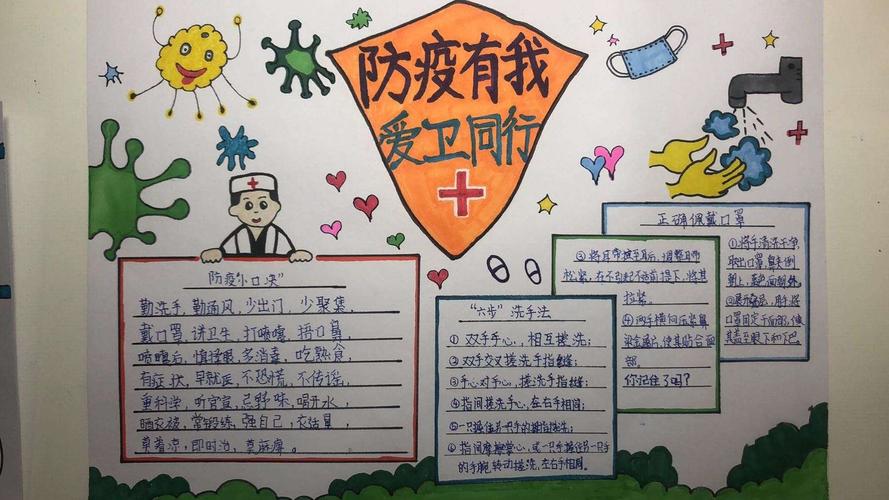 防疫有我
爱卫同行
防疫“小口决”
勤洗手,勤通风,少出门,少聚集,
戴口罩,讲卫生,打喷嚏,捂口鼻,
喷嚏后,慎揉眼,多消毒,吃熟食,
有症状,早就医,不恐慌,不传谣,
重科学,听官宣,忌野味,喝开水,
晒衣被,常锻练,强自己,衣话暴,
莫着凉,即时治,莫麻痹。
“六步”洗手法
① 双手手心,相互搓洗;
② 双手交叉搓洗手指缝;
③ 手心对手心,搓洗手指缝;
④ 指间搓洗手心,左右手相同;
⑤ 一只手握住另一只手的拇指搓洗;
⑥ 指间摩擦掌心,或一只手握住另一只手
的手腕,转动搓洗,左右手相同。
正确佩戴口罩
①将手清洗干净,
取出口罩,鼻夹侧
朝上,
②展开
口罩固定于面部,使
其盖至眼下和下巴
③将耳带挂至耳后,调整耳带
松紧,在不引起不适前提下,将其
拉紧。
④两手横向压紧鼻
梁金属片,使其贴合面
部。
你记住了吗?